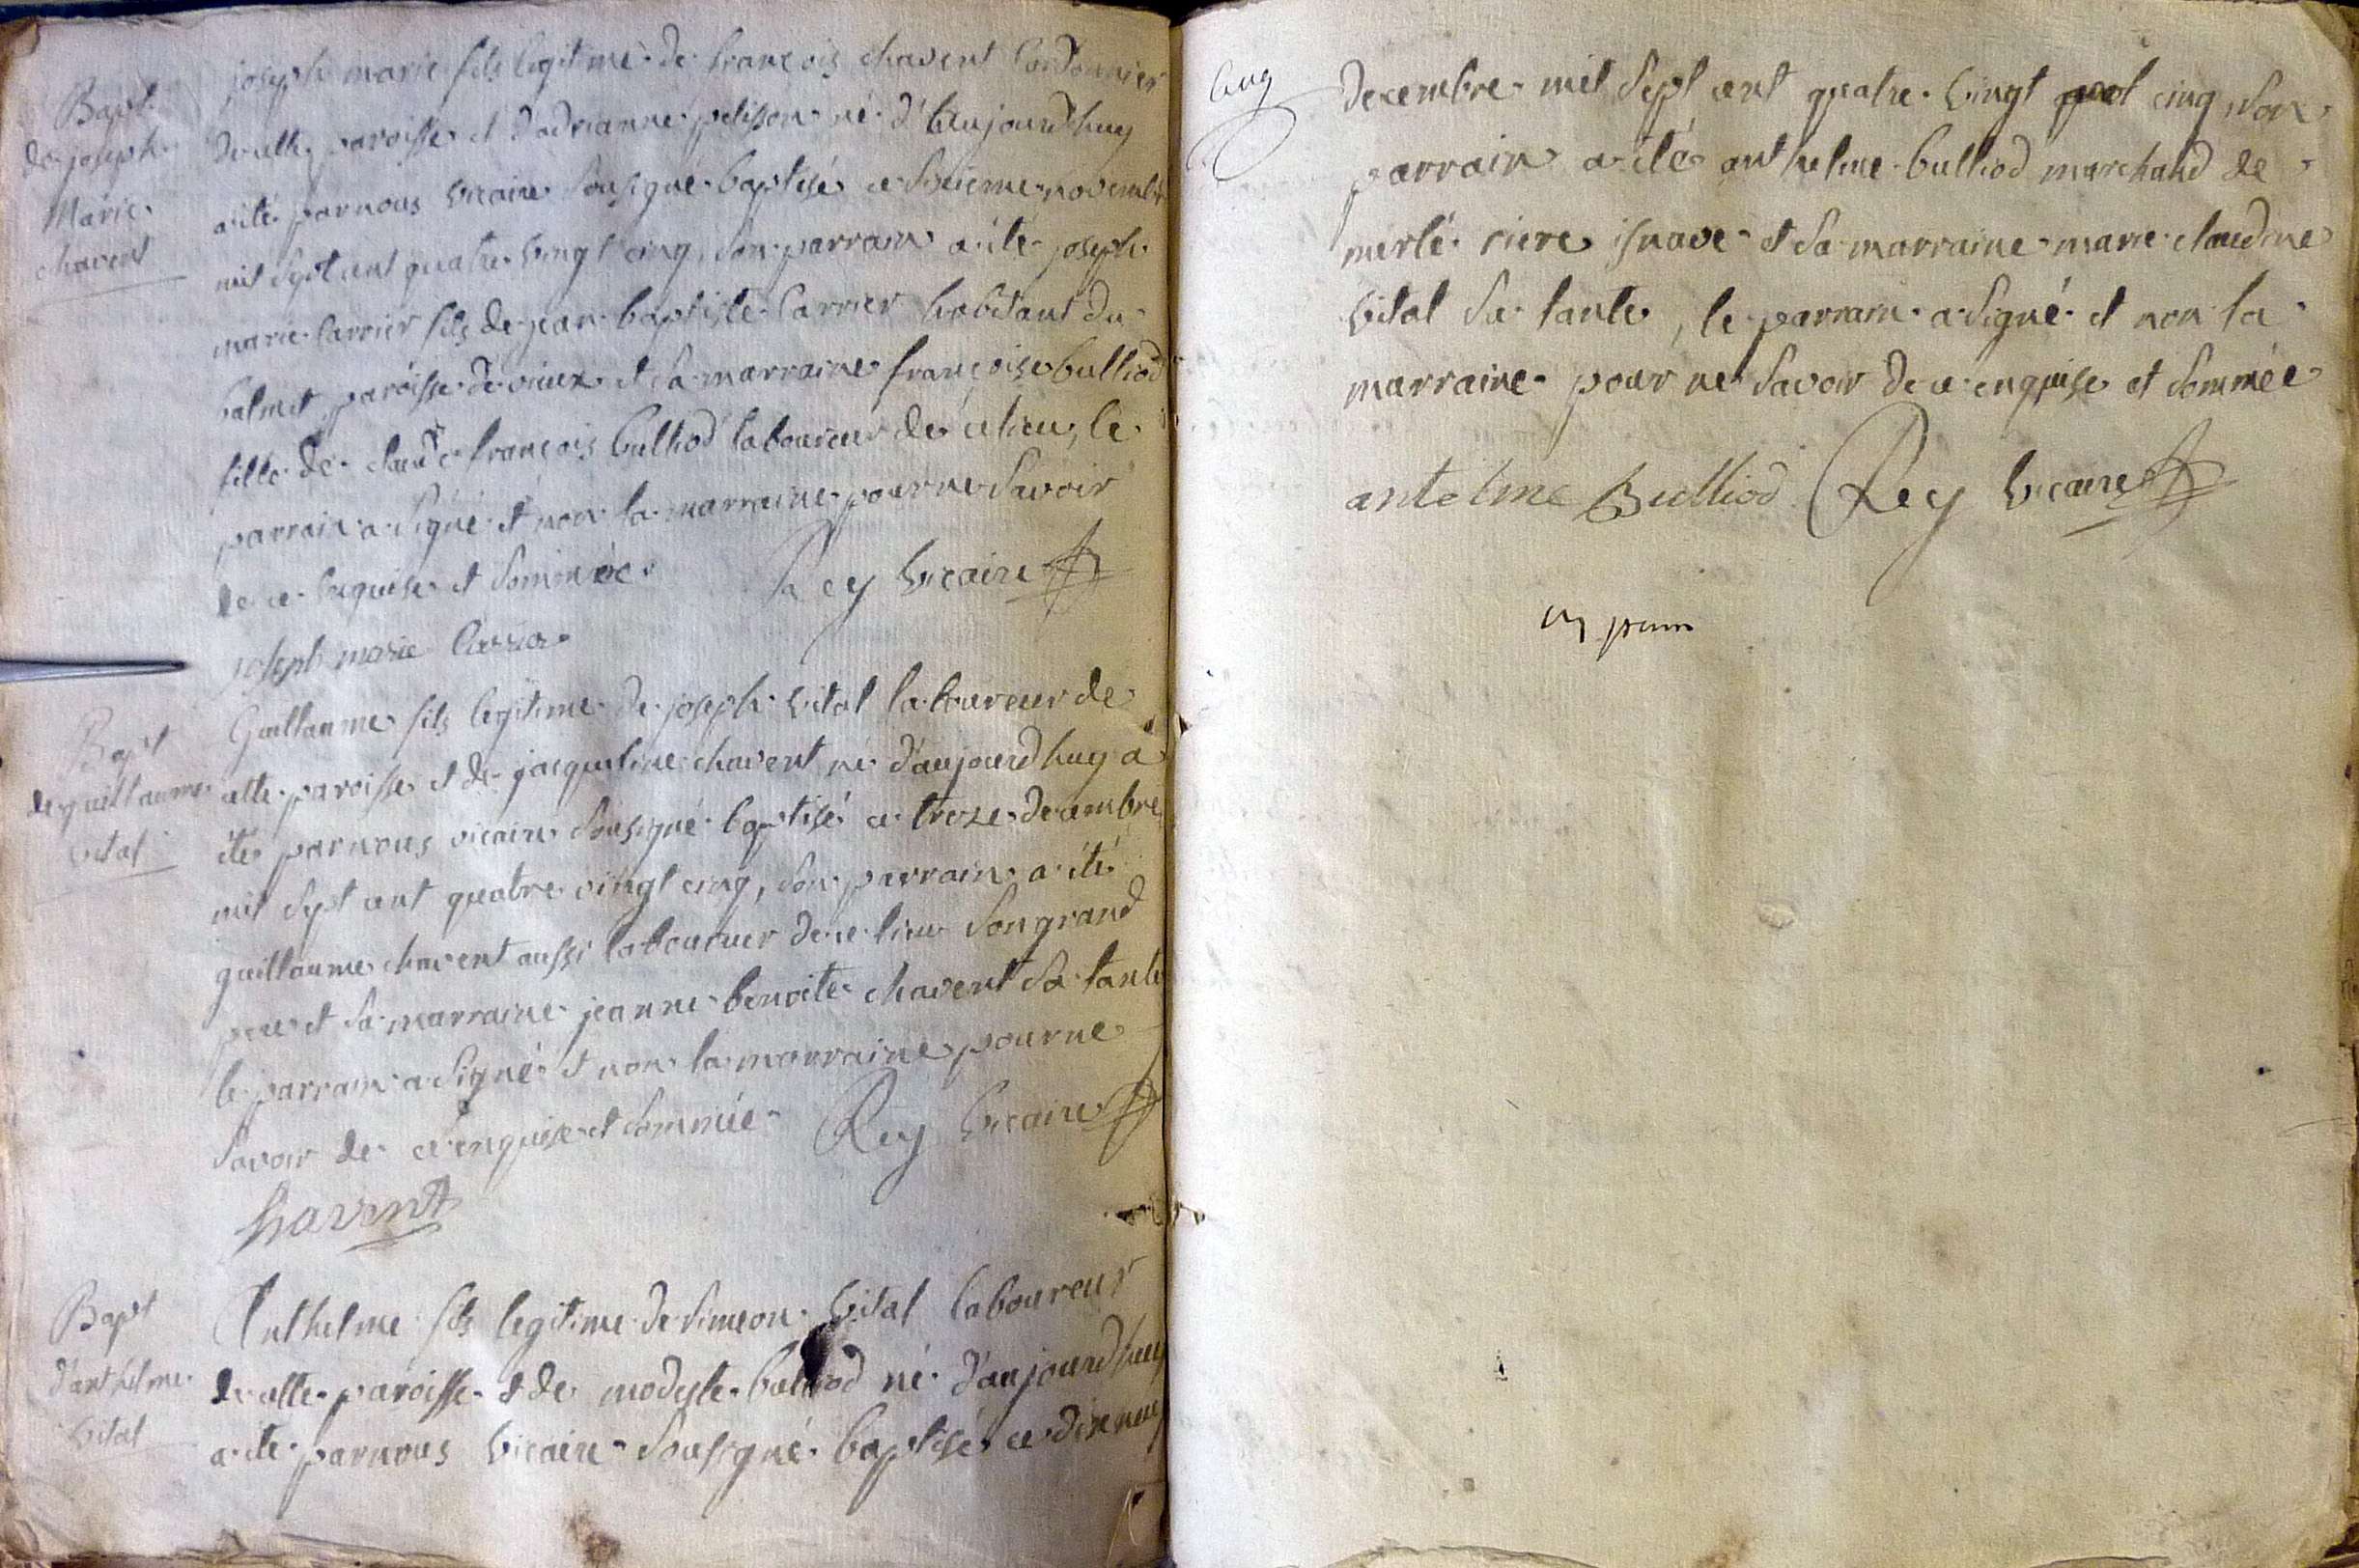 Bapt.
de joseph
Marie
chavent
joseph marie fils legitime de françois chavent Cordonnier
de cette paroisse et d'adrianne pelisson né d'aujourdhuy
a été par nous vicaire sousigné baptisé ce novembre
mil sept cent quatre vingt cinq, son parrain a été joseph
marie Carrier fils de jean baptiste Carrier habitant du
balmet paroisse de vieux et sa marraine françoise bulliod
fille de claude françois bulliod laboureur de ce lieu, le
parrain a signé et non la marraine pour ne savoir
de ce enquise et sommée. Rey vicaire
joseph marie
Bapt
de guillaume
vital
Guillaume fils legitime de joseph vital laboureur de
cette paroisse et de jacqueline chavent né d'aujourdhuy a
été par nous vicaire sousigné baptisé ce treze decembre
mil sept cent quatre vingt cinq, son parrain a été
guillaume chavent aussi laboureur de ce lieu son grand
pere et sa marraine jeanne benoite chavent sa tante
le parrain a signé et non la marraine pour ne
savoir de ce enquise et sommée. Rey vicaire
Chavent
Bapt
d'anthelme
vital
Anthelme fils legitime de simeon vital laboureur
de cette paroisse et de modeste bulliod né d'aujourdhuy
a été par nous vicaire sousigné baptisé ce dix neuf
decembre mil sept cent quatre vingt cinq, son
parrain a été anthelme bulliod marchand de
merlé riere isnave et sa marraine marie claudine
vital sa tante, le parrain a signé et non la
marraine pour ne savoir de ce enquise et sommée
antelme Bulliod Rey vicaire